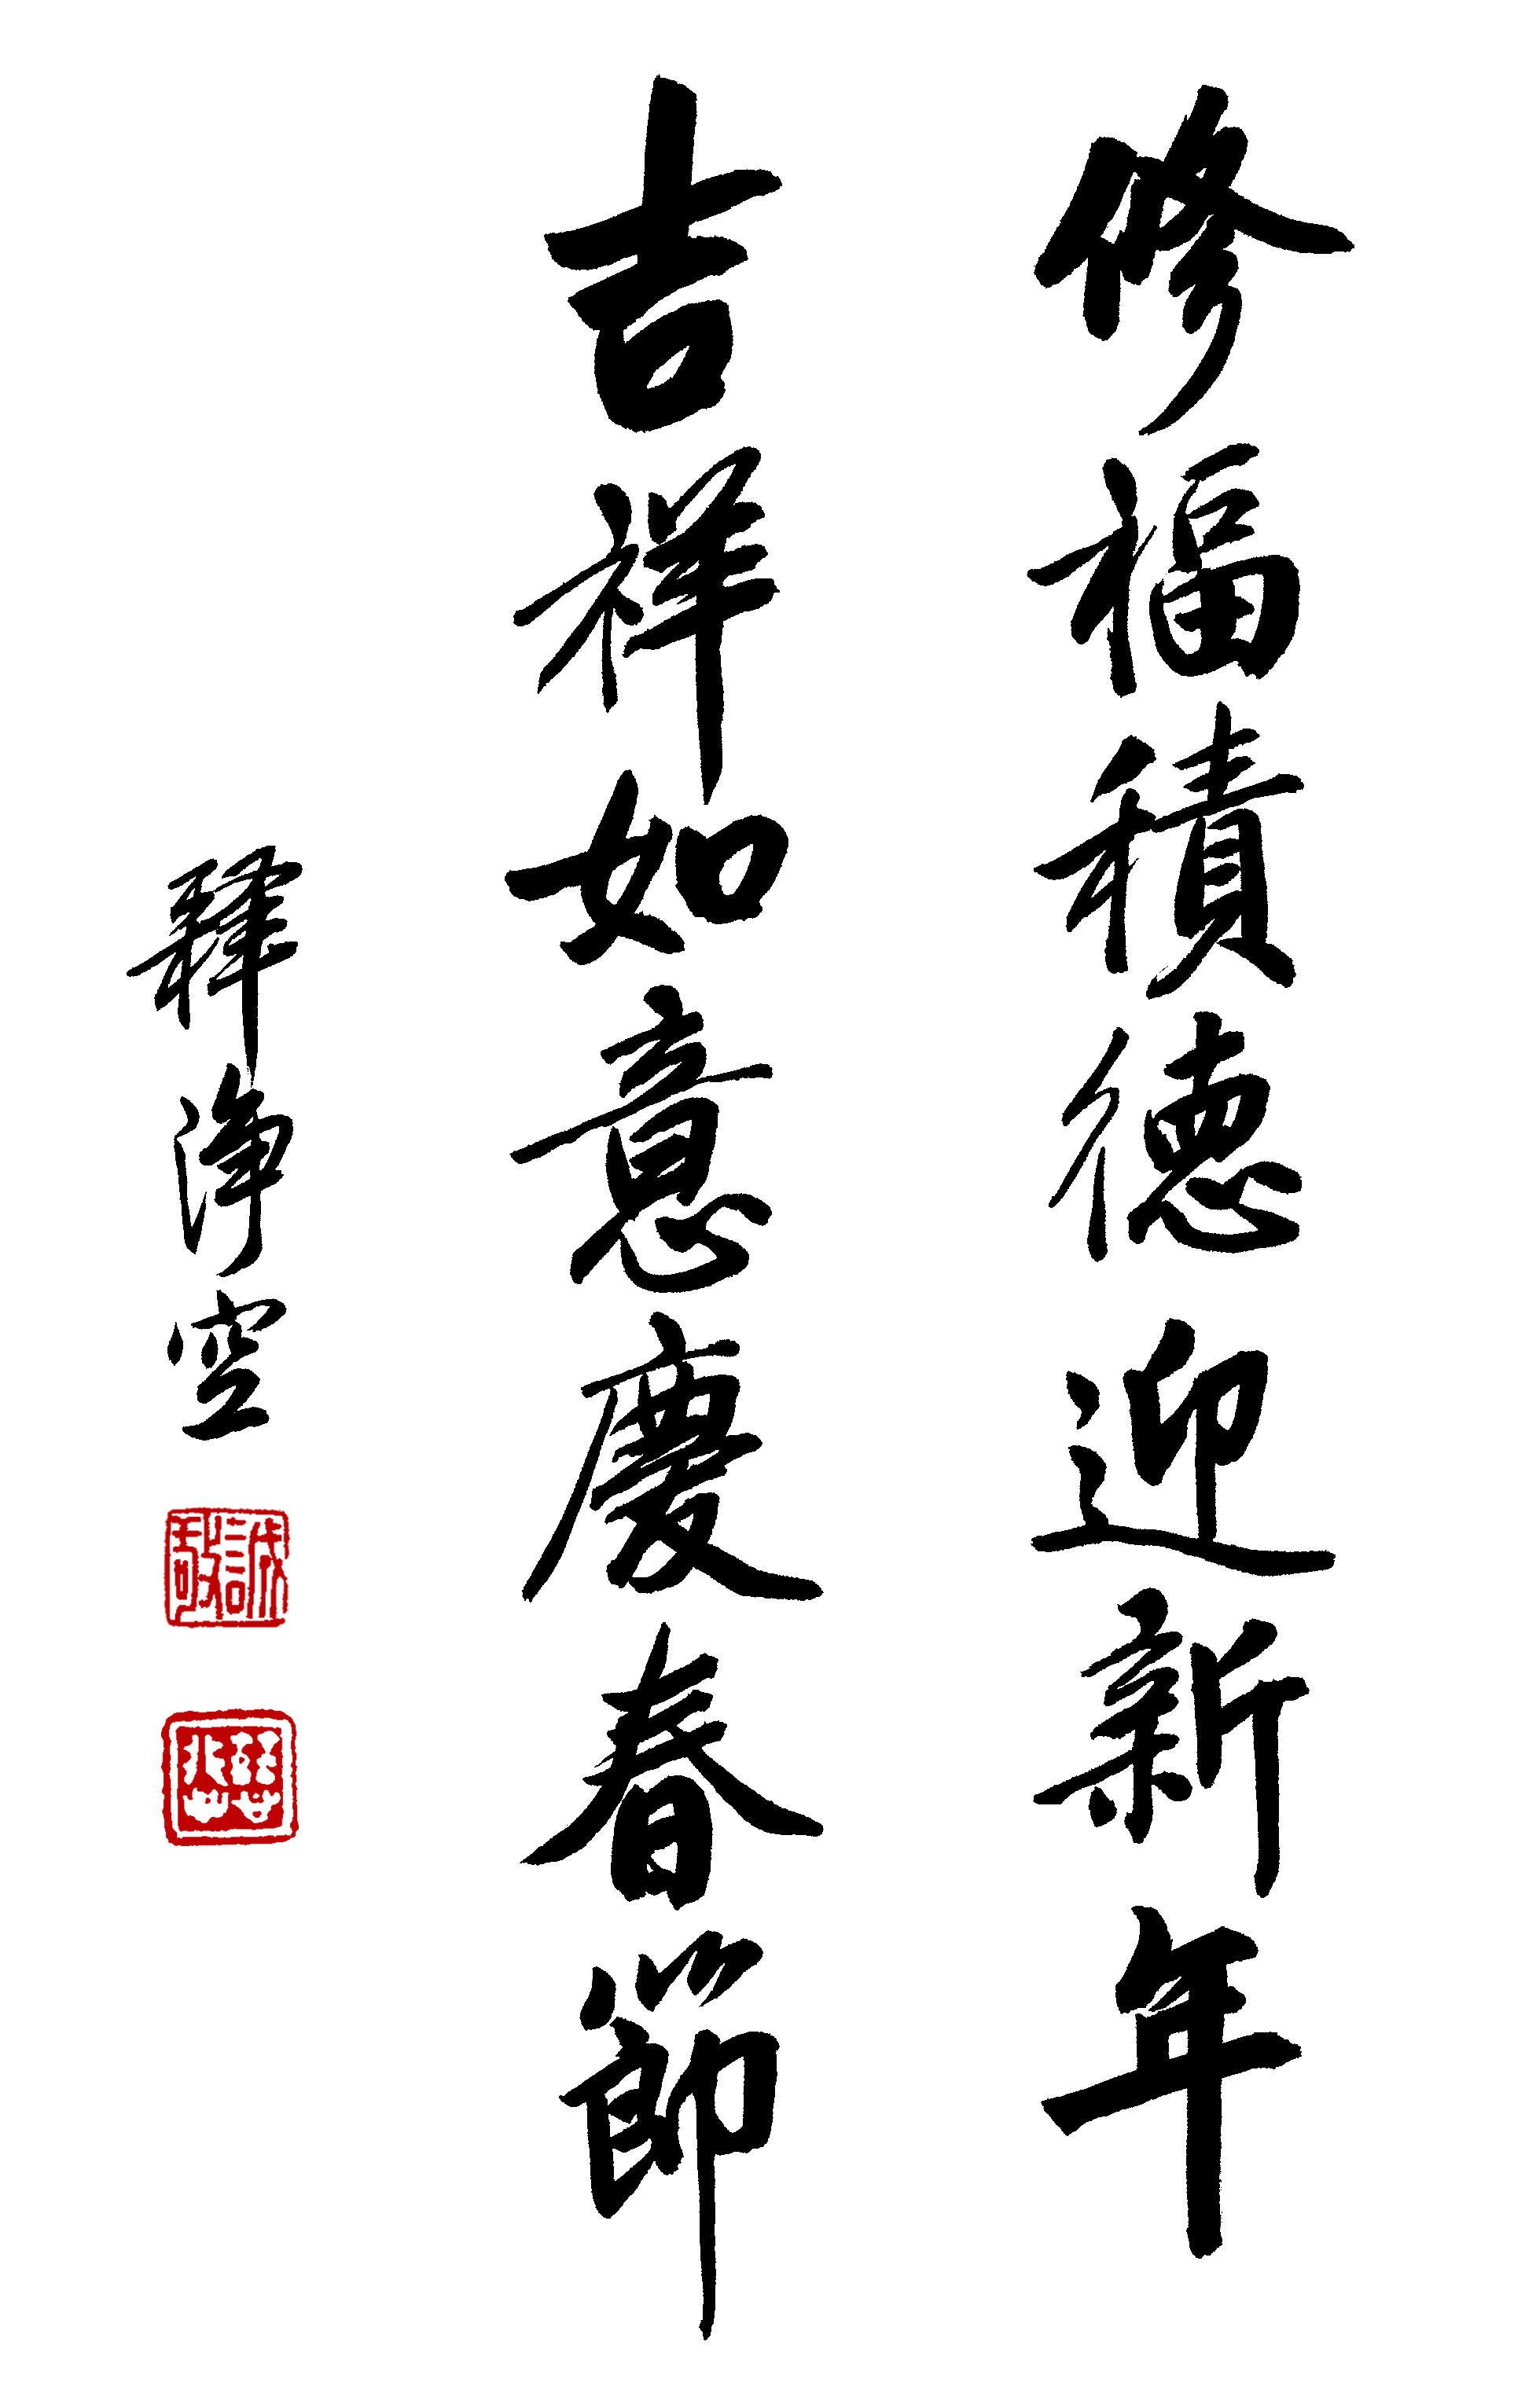 修福積德迎新年
吉祥如意慶春節
釋淨空
誠敬